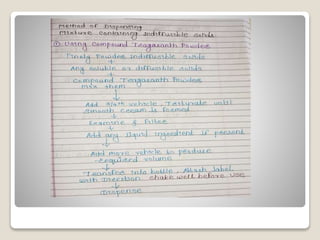 Method of Dispensing
Mixture containing indiffusible solids
① Using Compound Tragacanth Powder
Finely Powder Indiffusible solids
+
Any soluble or diffusible solids
+
Compound Tragacanth Powder
Mix them
Add 3/4th vehicle, Triturate until
smooth cream is formed
Examine & Filter
Add any liquid ingredient if present
Add more vehicle to produce
required volume
Transfer into bottle, Attach label
with Direction Shake well before use
Dispense